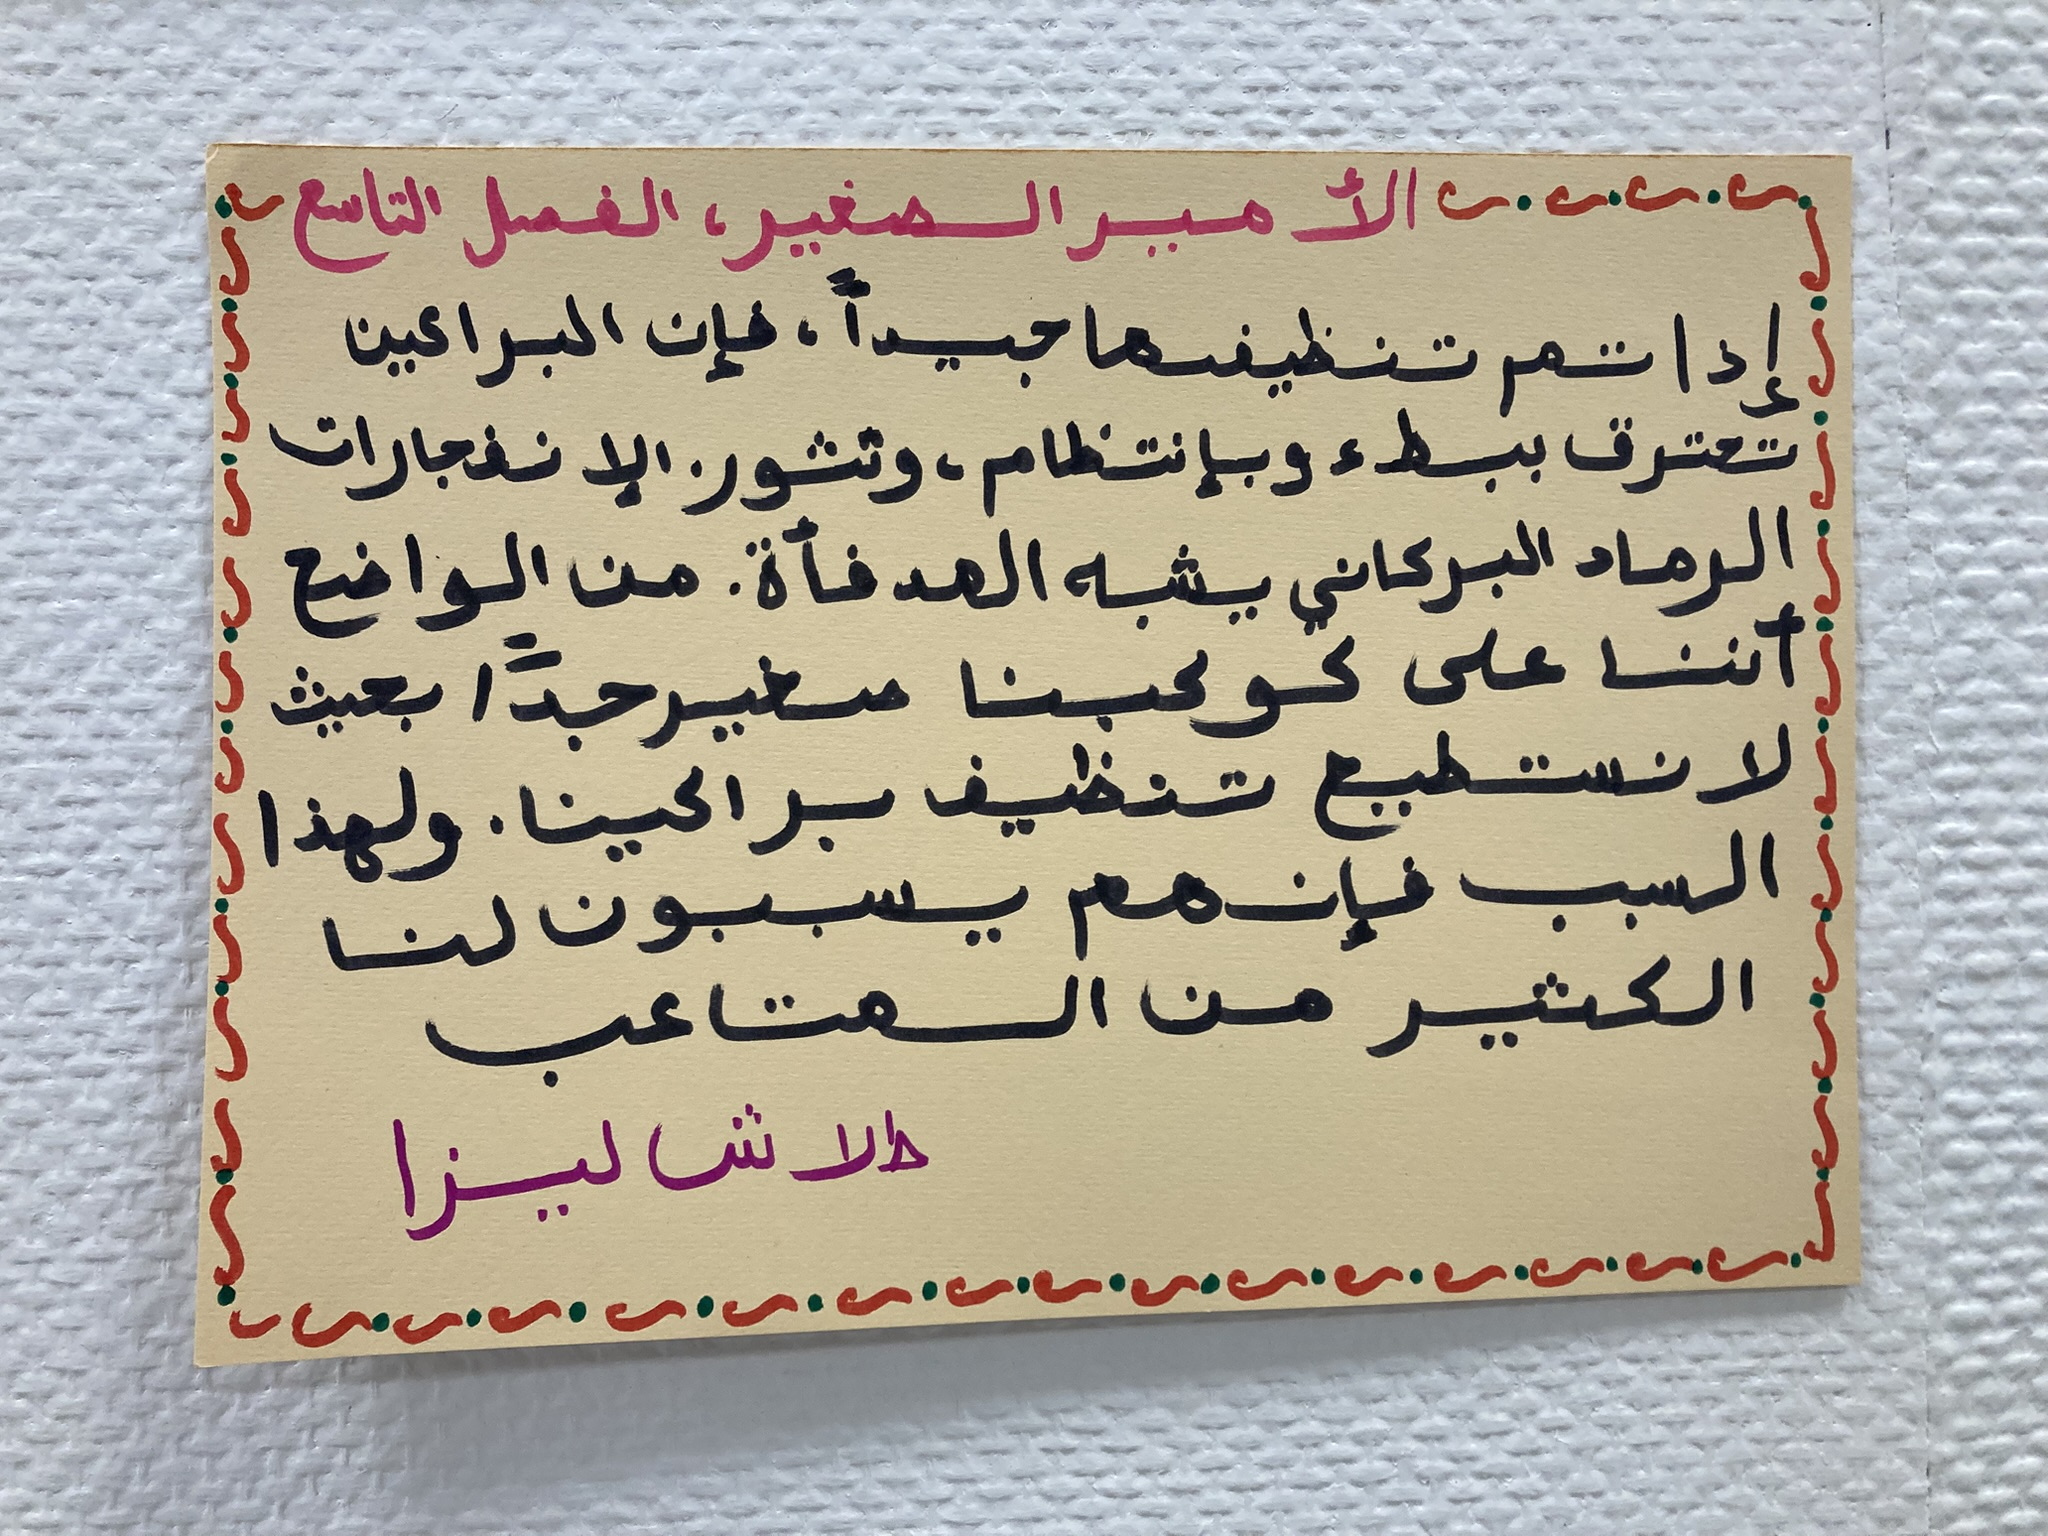 الأمير الصغير، الفصل التاسع
إذا تم تنظيفها جيداً، فإن البراكين
تعترق ببطء وبإنتظام، وتثور. الإنفجارات
الرماد البركاني يشبه المدفأة. من الواضح
أننا على كوكبنا صغير جداً بعيث
لا نستطيع تنظيف براكينا. ولهذا
السبب فإنهم يسببون لنا
الكثير من المتاعب
طلاش ليزا